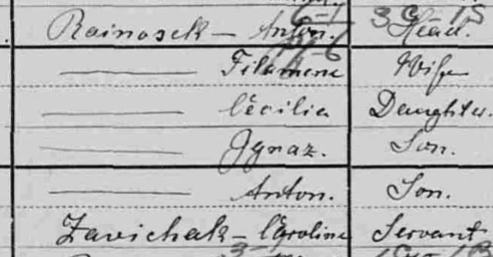 Rainosek – Anton. Head.
——— Filumena Wife
——— Cecilia Daughter.
——— Ignaz. Son.
——— Anton. Son.
Zavichak – Caroline Servant